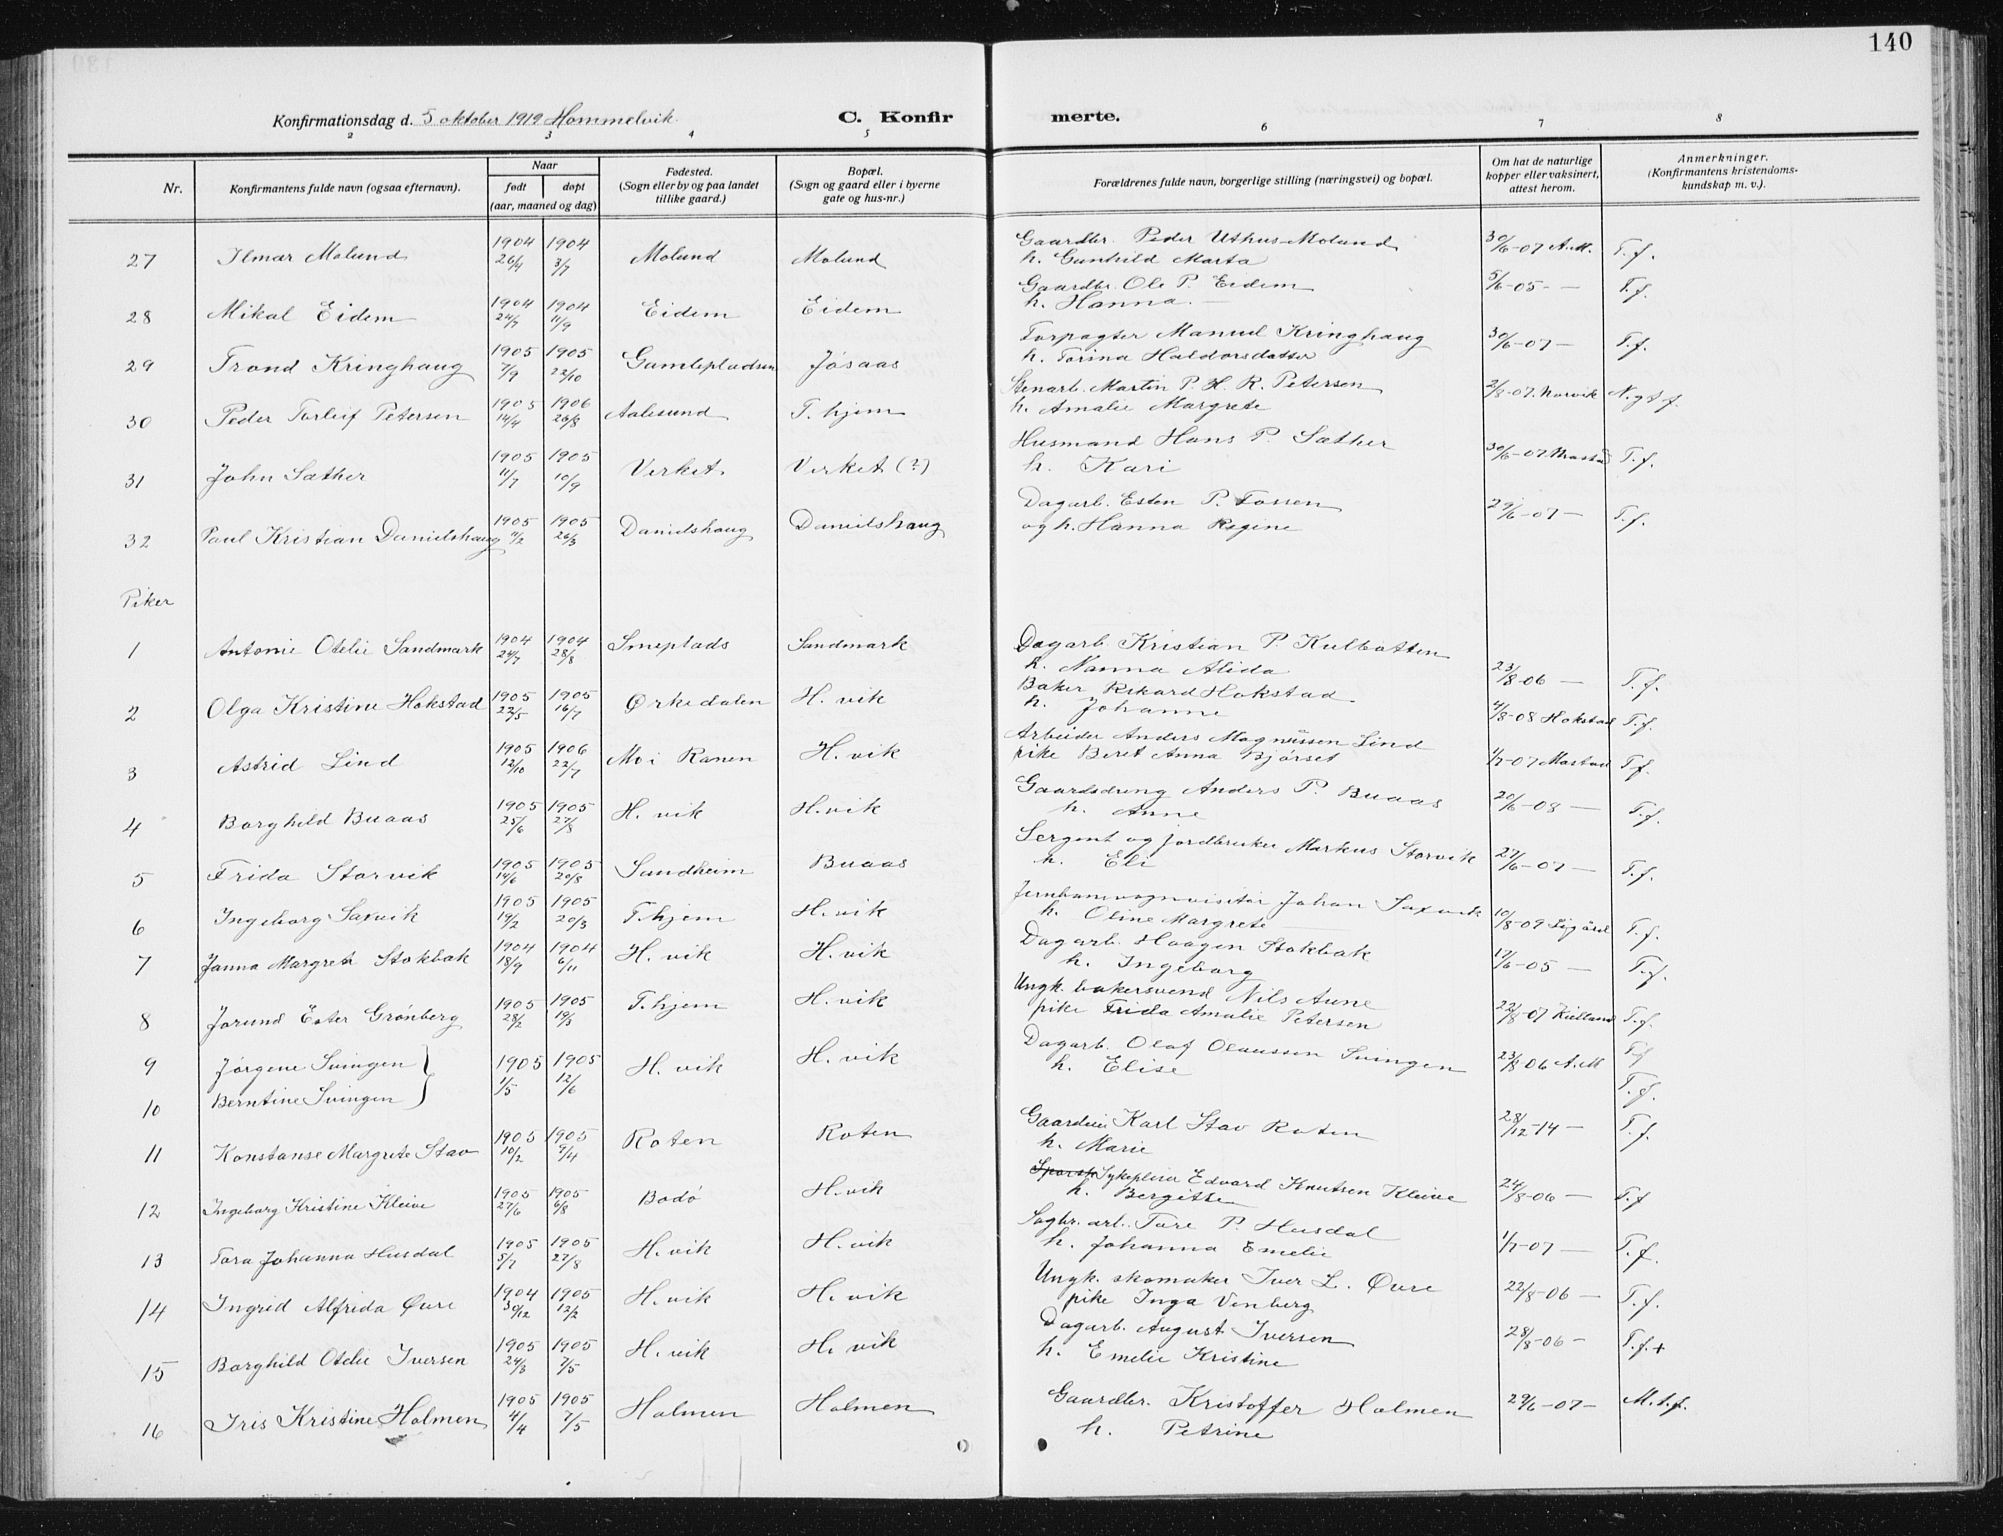 140
Konfirmationsdag d. 5 oktober 1919 Hommelvik.
C. Konfirmerte.
2 3 4 5 6 7 8
Nr. | Konfirmantens fulde navn (ogsaa efternavn). | Naar født døpt (aar, maaned og dag) | Fødested. (Sogn eller by og paa landet tillike gaard.) | Bopæl. (Sogn og gaard eller i byerne gate og hus-nr.) | Forældrenes fulde navn, borgerlige stilling (næringsvei) og bopæl. | Om hat de naturlige kopper eller vaksinert, attest herom. | Anmerkninger. (Konfirmantens kristendomskundskap m. v.).
27 Ilmar Moland 1904 26/4 1904 3/7 Moland Moland Gaardbr. Peder Uthus-Moland h. Gunhild Marta 30/6-07 A.M. T.f.
28 Mikal Eidem 1904 24/7 1904 11/9 Eidem Eidem Gaardbr. Ole P. Eidem h. Hanna. — 5/6-05- — T.f.
29 Trond Kringhaug 1905 7/9 1905 22/10 Gamlepladsen Jøsaas Forpagter Manuel Kringhaug h. Torina Haldorsdatter 30/6-07- T.f.
30 Peder Torleif Petersen 1905 14/4 1906 26/8 Aalesund T. hjem Stenarb. Martin P. H. R. Petersen h. Amalie Margrete 2/8-07. Norvik N.gt f.
31 John Sæther 1905 11/7 1905 10/9 Verket Verket (?) Husmand Hans P. Sæther h. Kari 30/6-07 Mostad T.f.
32 Paul Kristian Danielshaug 1905 11/2 1905 26/3 Danielshaug Danielshaug Dagarb. Esten P. Fossen og h. Hanna Regine 29/6-07- T.f.
Piker
1 Antonie Otelie Sandmark 1904 24/7 1904 28/8 Smeplads Sandmark Dagarb. Kristian P. Kulbotten h. Nanna Alida 23/8-06 — T.f.
2 Olga Kristine Hokstad 1905 22/5 1905 16/7 Ørkedalen H. vik Baker Rikard Hokstad h. Johanne 4/8-08 Hokstad T.f.
3 Astrid Lind 1905 12/10 1906 22/7 Mo i Ranen H. vik Arbeider Anders Magnussen Lind pike Beret Anna Bjørset 1/7-07 Mostad T.f.
4 Borghild Buaas 1905 25/6 1905 27/8 H. vik H. vik Gaardsdreng Anders P Buaas h. Anne 20/6-08 — T.f.
5 Frida Storvik 1905 14/6 1905 20/8 Sandheim Buaas Sergent og jordbruker Markus Storvik h. Eli 27/6-07- T.f.
6 Ingeborg Saxvik 1905 19/2 1905 20/3 T.hjem H. vik Jernbanevognvisitør Johan Saxvik h. Oline Margrete 10/8-09 T.f.
7 Janna Margrete Stokbak 1904 18/9 1904 6/11 H. vik H. vik Dagarb. Haagen Stokbak h. Ingeborg 17/6-05 — T.f.
8 Jorund Ester Grønberg 1905 28/2 1905 19/3 T.hjem H. vik Ungk. bakersvend Nils Aune pike Frida Amalie Petersen 22/8-07 Kielland T.f.
9 Jørgene Svingen 1905 1/5 1905 12/6 H. vik H. vik Dagarb. Olaf Olaussen Svingen h. Elise 23/8-06 A.M T.f
10 Berntine Svingen T.f.
11 Konstanse Margrete Stav 1905 10/2 1905 9/4 Roten Roten Karl Stav Roten h. Marie 28/12-14 - T.f.
12 Ingeborg Kristine Kleive 1905 27/6 1905 6/8 Bodø H. vik Edvard Knutsen Kleive h. Bergitte 24/8-06 — T.f
13 Tora Johanna Husdal 1905 5/7 1905 27/8 H. vik H. vik Sagbr. arb. Tore P. Husdal h. Johanna Emelie 1/7-07 — T.f.
14 Ingrid Alfrida Øvre 1904 30/12 1905 12/2 H. vik H. vik Ungk. skomaker Iver L. Øvre pike Inga Venberg 22/8-06 — T.f.
15 Borghild Otelie Iversen 1905 24/3 1905 7/5 H. vik H. vik Dagarb. August Iversen h. Emelie Kristine 28/8-06 - T.f.+
16 Iris Kristine Holmen 1905 4/4 1905 7/5 Holmen Holmen Gaardbr. Kristoffer Holmen h. Petrine 29/6-07- M.t.f.